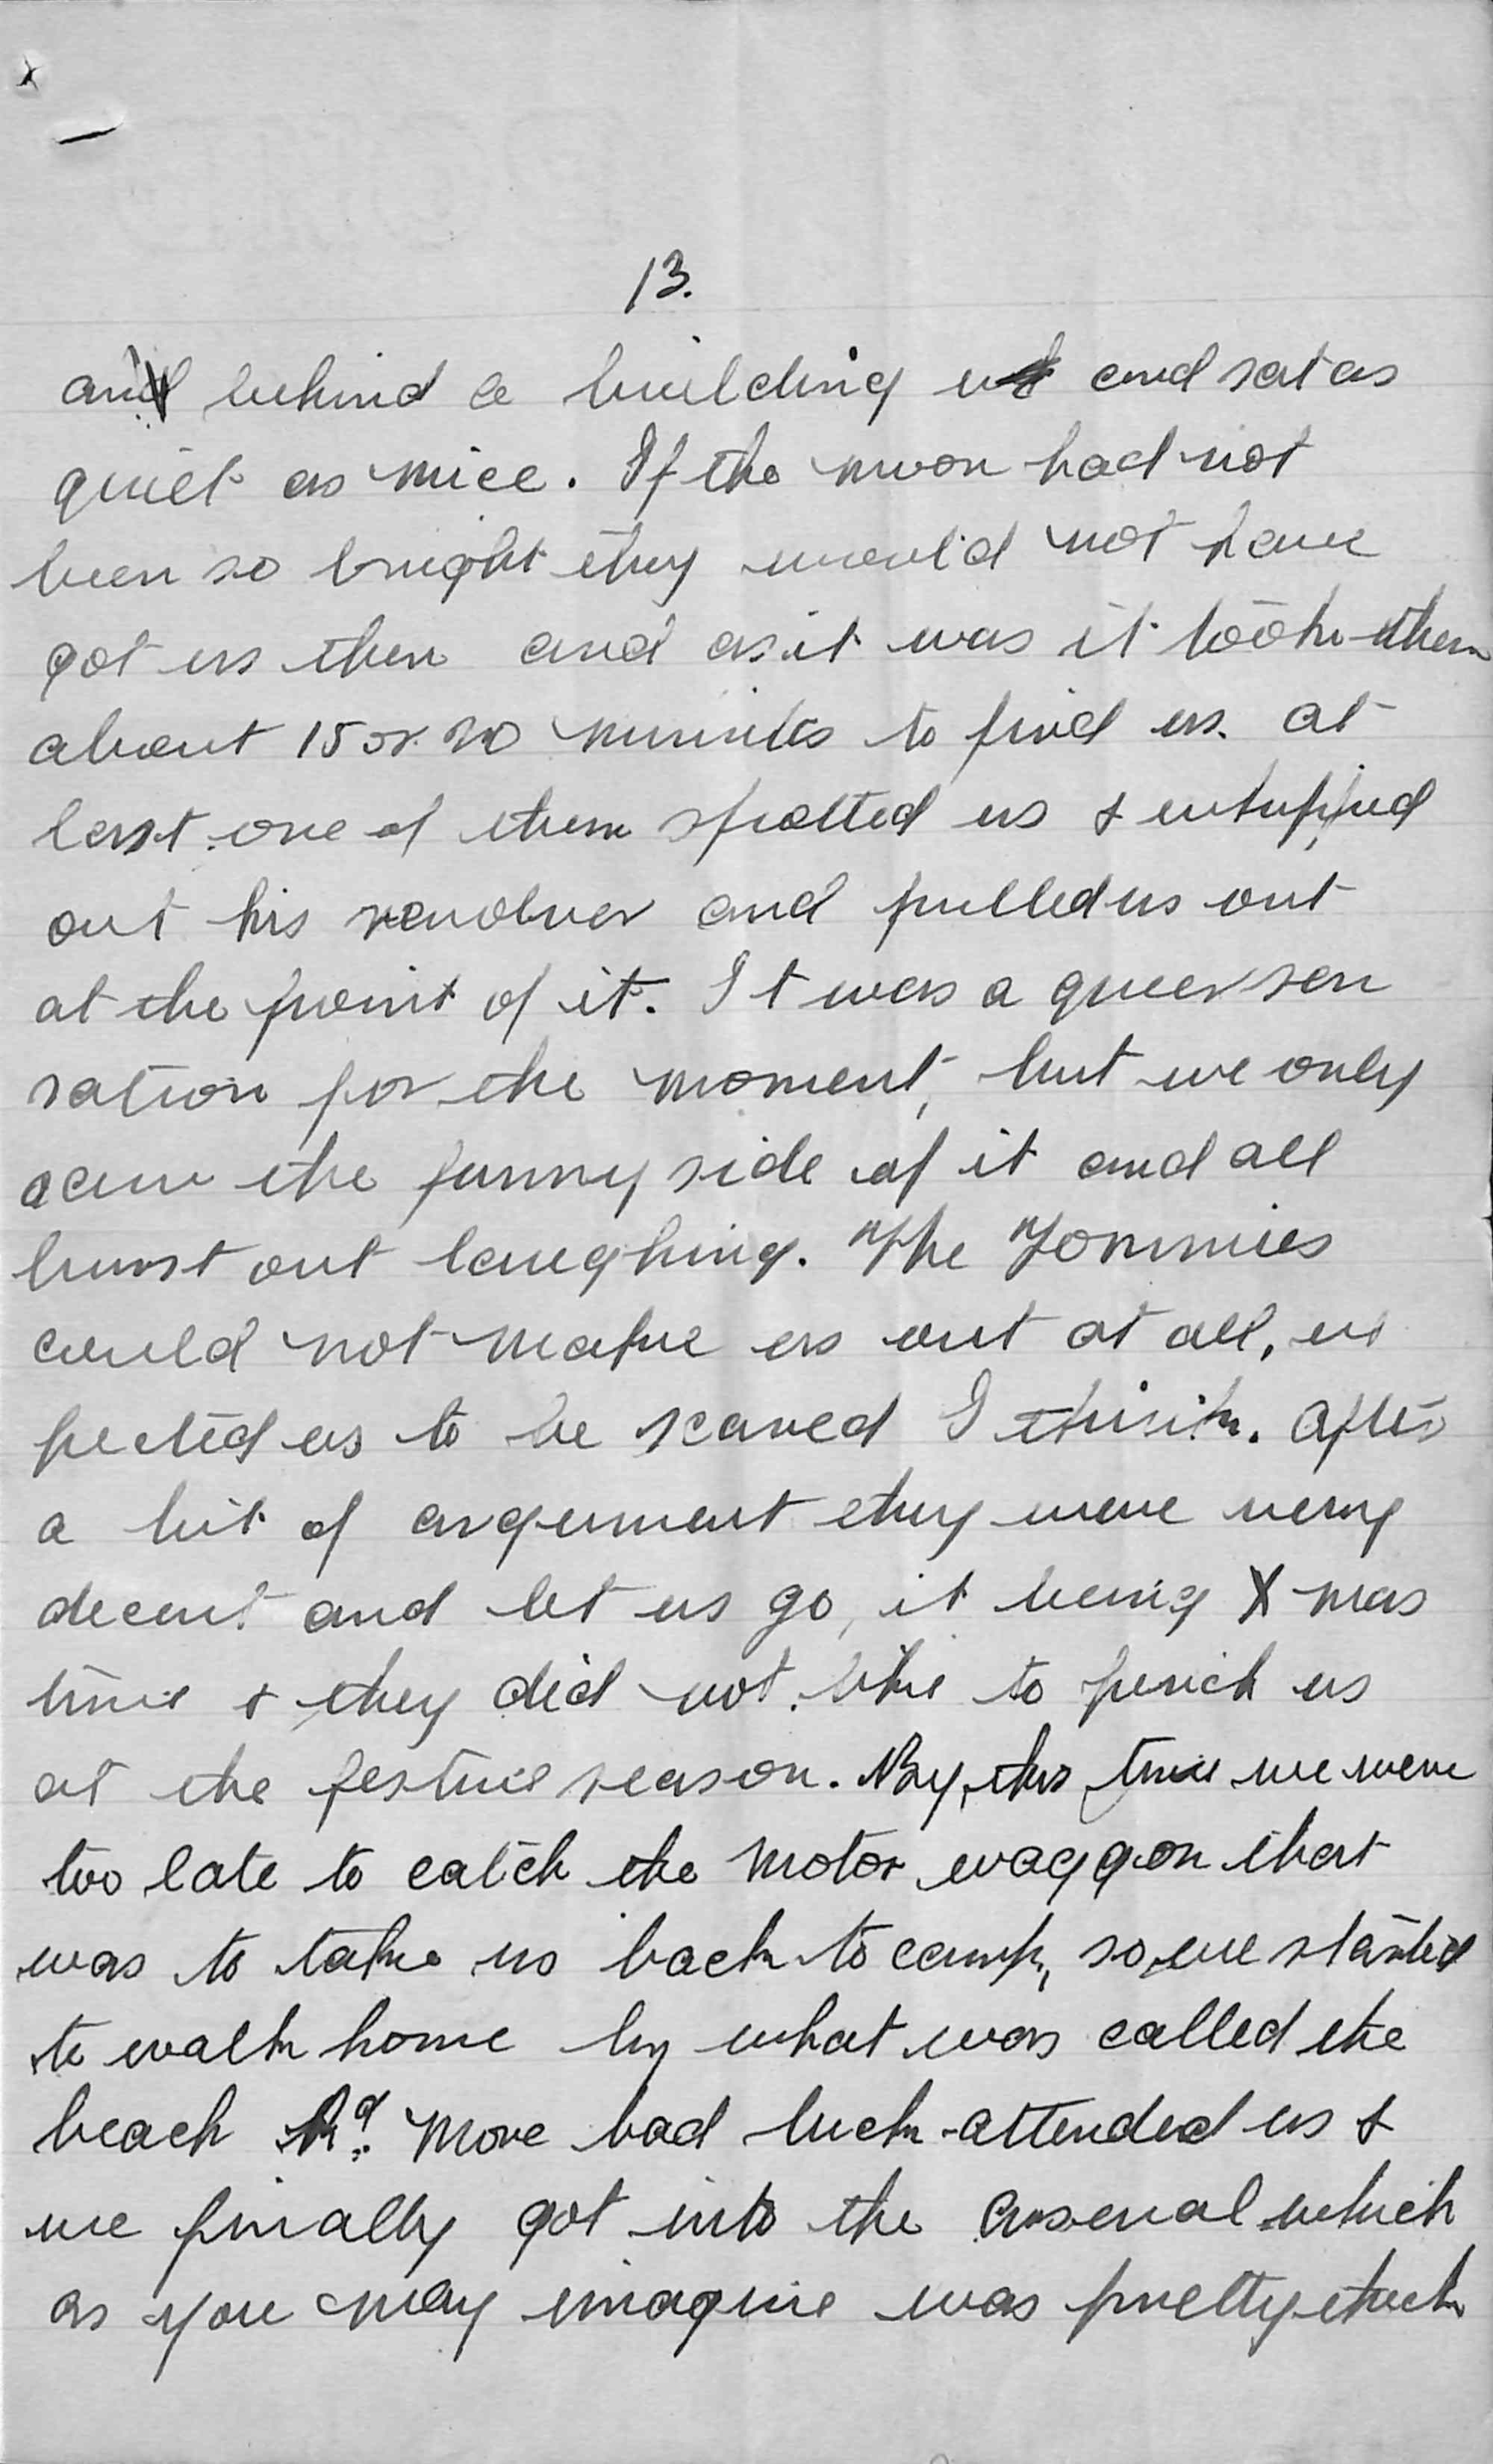 13.
and behind a building and sat as
quiet as mice. If the moon had not
been so bright they would not have
got us then and as it was it took them
about 15 or 20 minutes to find us. at
last one of them spotted us & whipped
out his revolver and pulled us out
at the point of it. It was a queer sen
sation for the moment, but we only
saw the funny side of it and all
burst out laughing. The Tommies
could not make us out at all, ex
pected us to be scared I think. After
a bit of arguement they were very
decent and let us go, it being Xmas
time & they did not like to pinch us
at the festive season. By this time we were
too late to catch the motor waggon that
was to take us back to camp, so we started
to walk home by what was called the
beach Rd. More bad luck attended us &
we finally got into the Arsenal which
as you may imagine was pretty thick